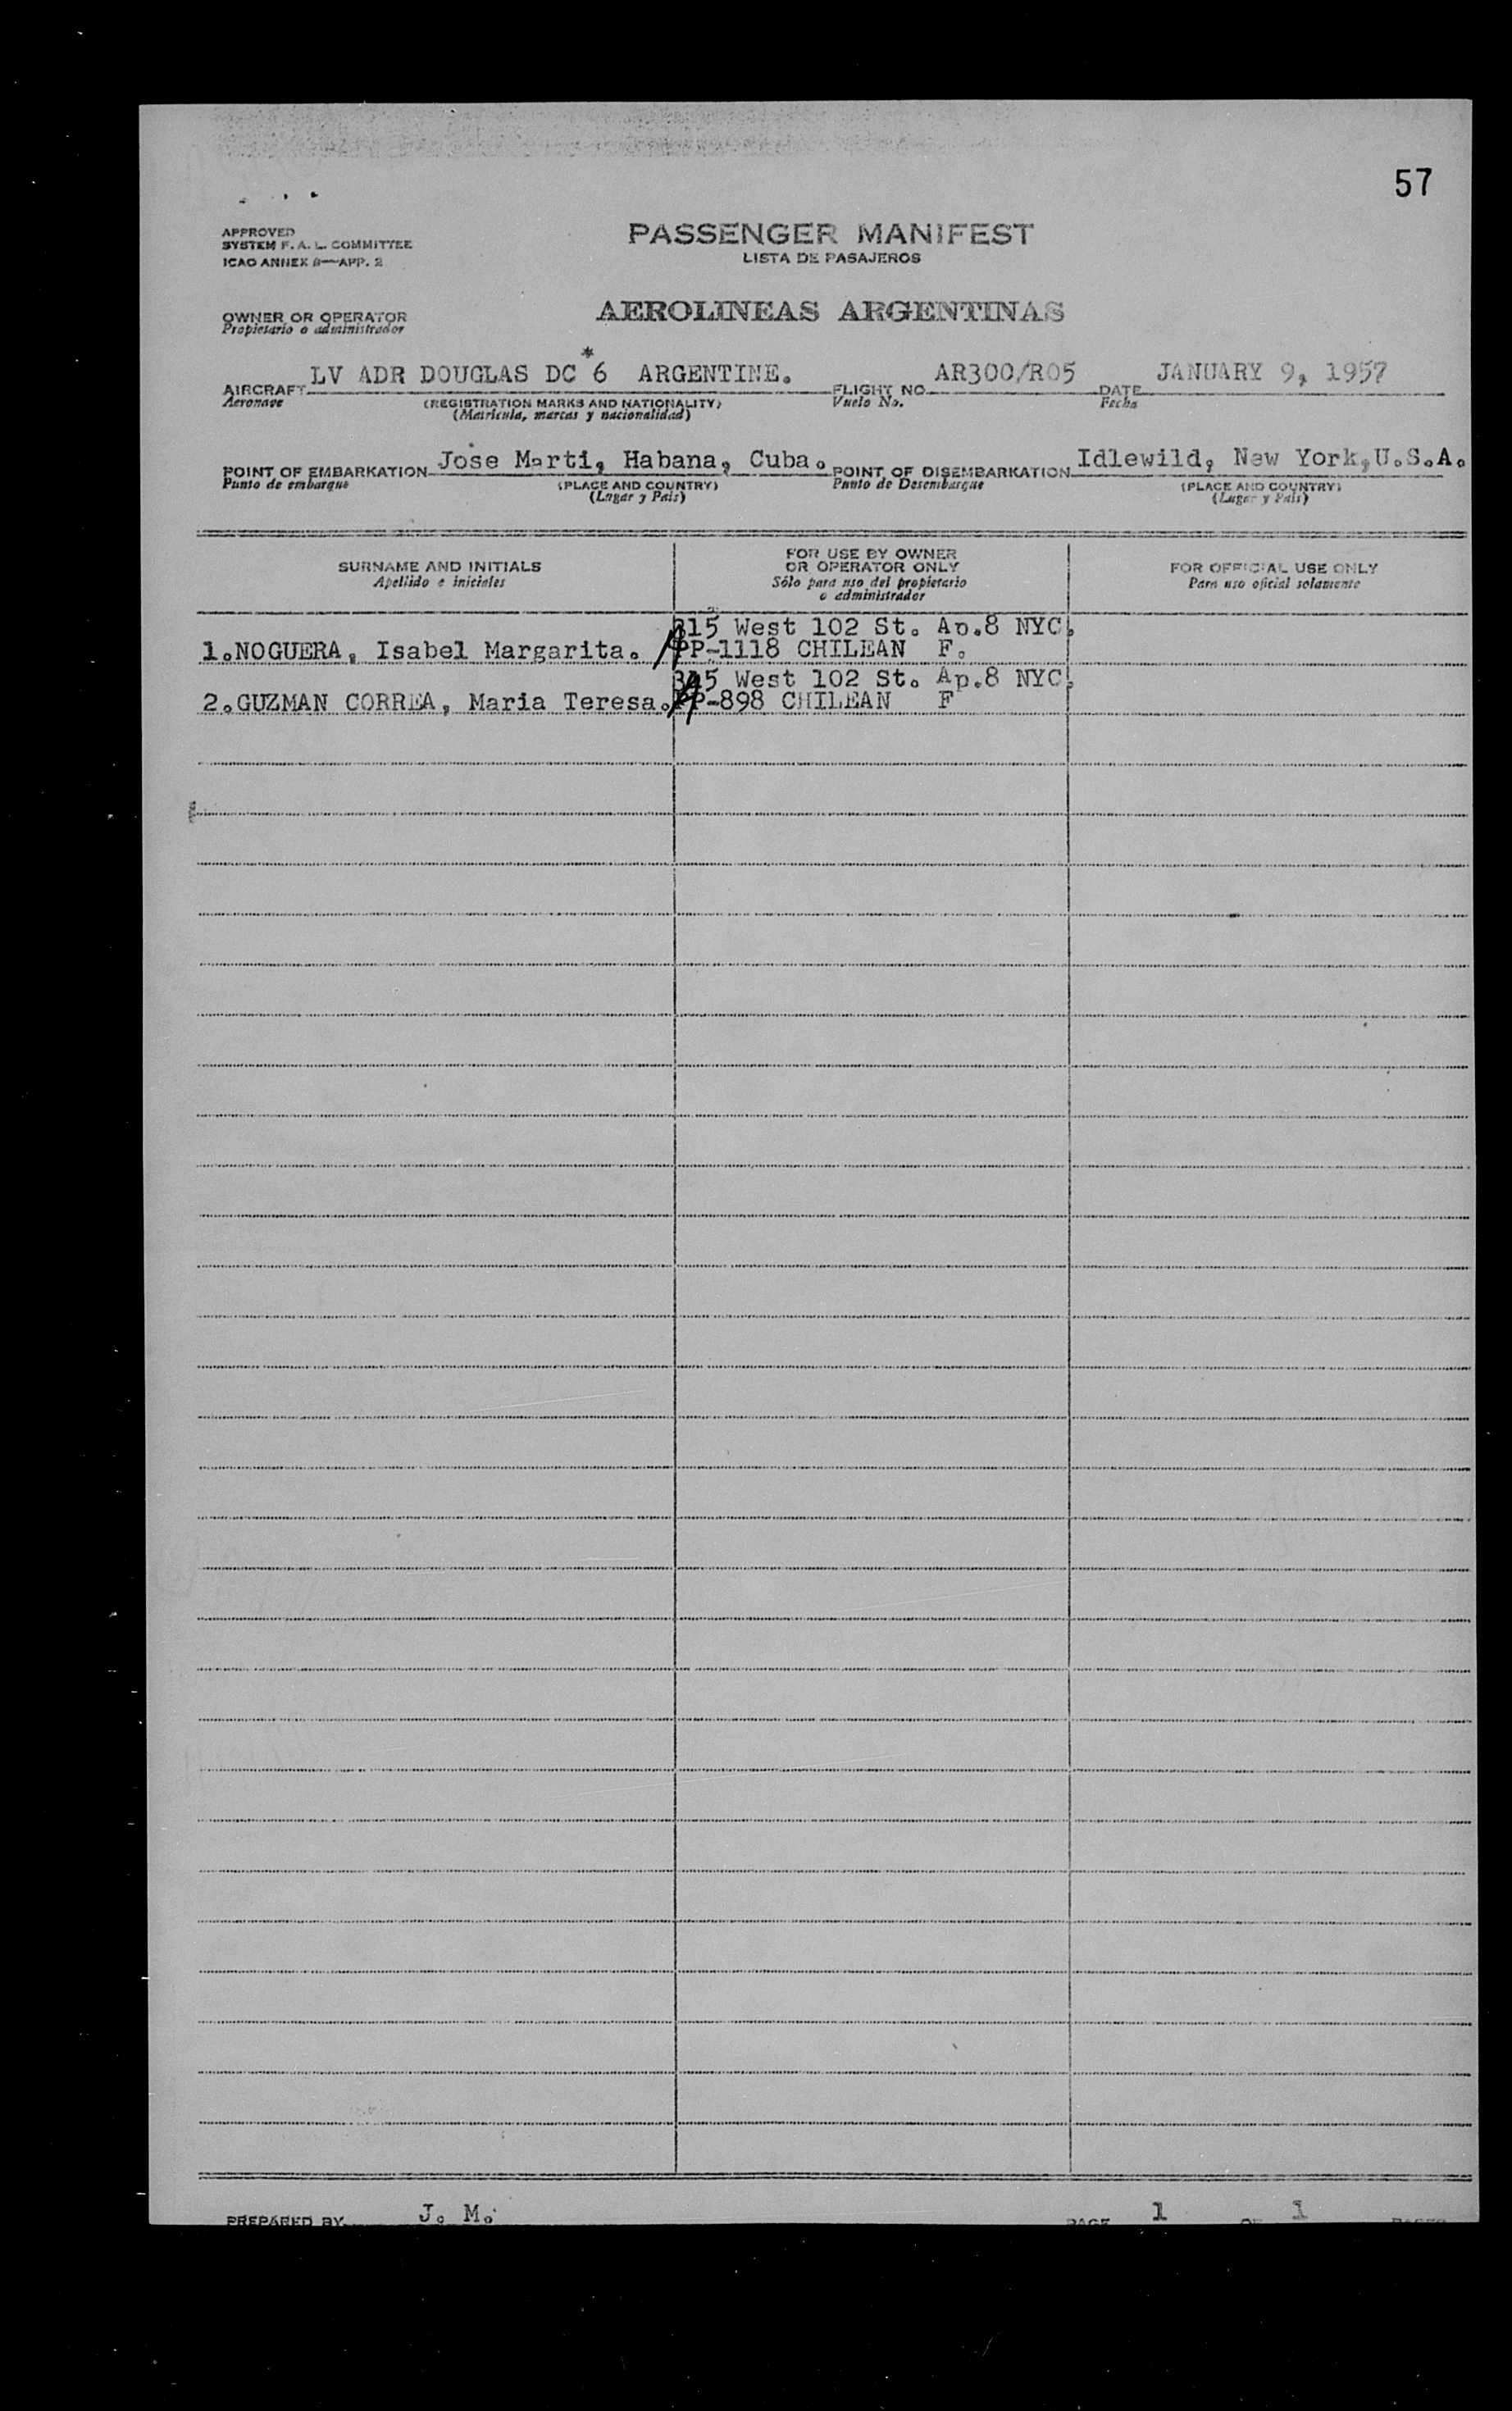 57
APPROVED
SYSTEM F. A. L. COMMITTEE
ICAO ANNEX 9—APP. 2
PASSENGER MANIFEST
LISTA DE PASAJEROS
OWNER OR OPERATOR
Propietario o administrador
AEROLINEAS ARGENTINAS
AIRCRAFT LV ADR DOUGLAS DC*6 ARGENTINE. FLIGHT NO AR300/R05 DATE JANUARY 9, 1957
Aeronave (REGISTRATION MARKS AND NATIONALITY) Vuelo No. Fecha
(Matrícula, marcas y nacionalidad)
POINT OF EMBARKATION Jose Marti, Habana, Cuba. POINT OF DISEMBARKATION Idlewild, New York,U.S.A.
Punto de embarque (PLACE AND COUNTRY) Punto de Desembarque (PLACE AND COUNTRY)
(Lugar y País) (Lugar y País)
SURNAME AND INITIALS
Apellido e iniciales
FOR USE BY OWNER
OR OPERATOR ONLY
Sólo para uso del propietario
o administrador
FOR OFFICIAL USE ONLY
Para uso oficial solamente
315 West 102 St. Ap.8 NYC.
1.NOGUERA, Isabel Margarita. PP-1118 CHILEAN F.
315 West 102 St. Ap.8 NYC.
2.GUZMAN CORREA, Maria Teresa. PP-898 CHILEAN F
PREPARED BY J. M. PAGE 1 OF 1 PAGES